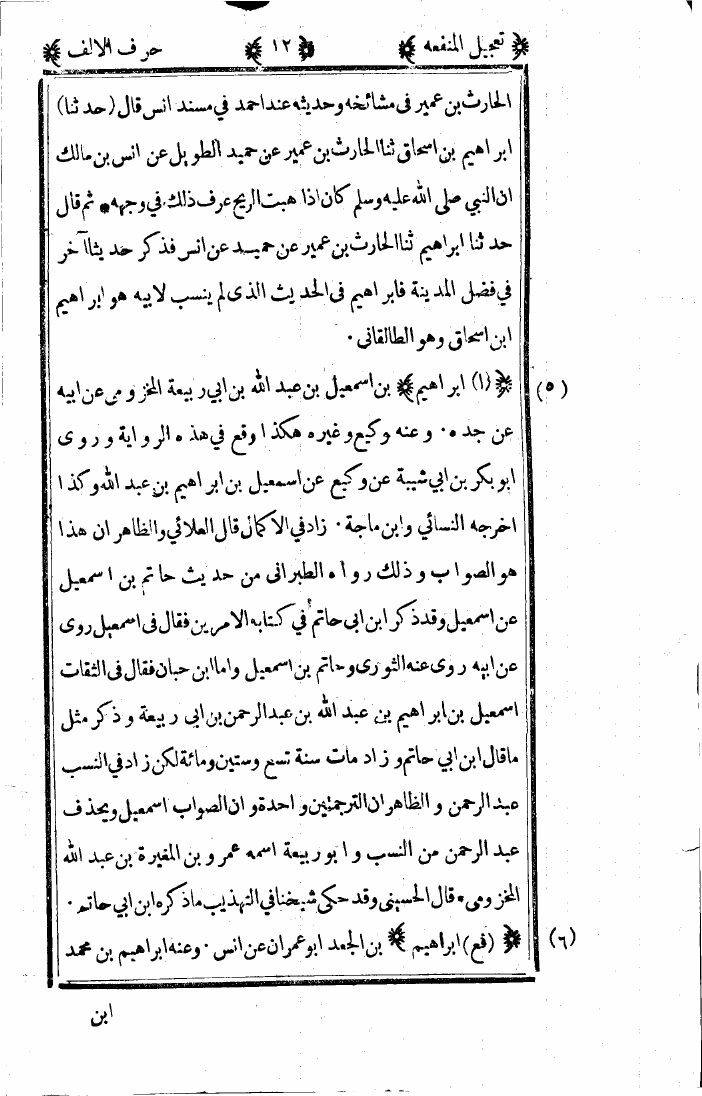 ﴿ تعجيل المنفعه ﴾ ﴿ ١٢ ﴾ ﴿ حرف الالف ﴾
الحارث بن عمير فى مشائخه وحديثه عند احمد في مسند انس قال (حدثنا)
ابراهيم بن اسحاق ثنا الحارث بن عمير عن حميد الطويل عن انس بن مالك
ان النبي صلى الله عليه وسلم كان اذا هبت الريح عرف ذلك في وجهه • ثم قال
حدثنا ابراهيم ثنا الحارث بن عمير عن حميد عن انس فذكر حديثا آخر
في فضل المدينة فابراهيم فى الحديث الذى لم ينسب لابيه هو ابراهيم
ابن اسحاق وهو الطالقانى •
(٥) ﴿ (ا) ابراهيم ﴾ بن اسمعيل بن عبد الله بن ابي ربيعة المخزومى عن ابيه
عن جده • وعنه وكيع وغيره هكذا وقع في هذه الرواية و روى
ابو بكر بن ابي شيبة عن وكيع عن اسمعيل بن ابراهيم بن عبد الله وكذا
اخرجه النسائي وابن ماجة • زاد في الاكمال قال العلائي والظاهر ان هذا
هو الصواب وذلك رواه الطبرانى من حديث حاتم بن اسمعيل
عن اسمعيل وقد ذكر ابن ابى حاتم في كتابه الامرين فقال فى اسمعيل روى
عن ابيه روى عنه الثورى وحاتم بن اسمعيل واما ابن حبان فقال فى الثقات
اسمعيل بن ابراهيم بن عبد الله بن عبد الرحمن بن ابى ربيعة وذكر مثل
ما قال ابن ابي حاتم و زاد مات سنة تسع وستين ومائة لكن زاد في النسب
عبد الرحمن و الظاهر ان الترجمتين واحدة وان الصواب اسمعيل ويحذف
عبد الرحمن من النسب و ابو ربيعة اسمه عمرو بن المغيرة بن عبد الله
المخزومى • قال الحسينى وقد حكى شيخنا في التهذيب ما ذكره ابن ابي حاتم •
(٦) ﴿ (فع) ابراهيم ﴾ بن الجعد ابو عمران عن انس • وعنه ابراهيم بن محمد
ابن